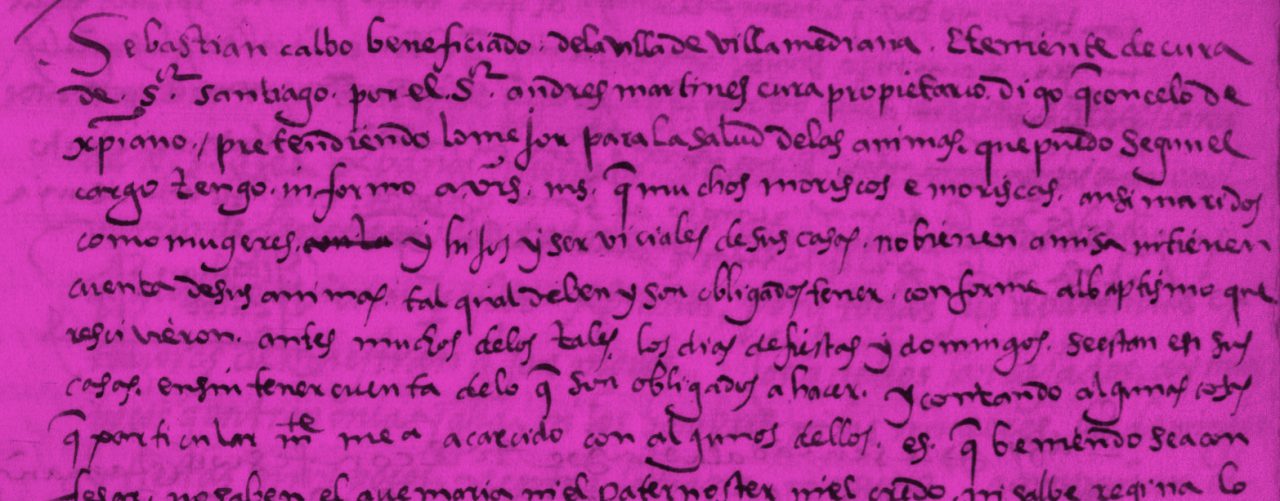 Sebastian calbo beneficiado. dela villa de villamediana. E teniente de cura
de. Sr. Santiago. por el. Sr. andres martines cura propietario. digo q con celo de
xpiano. / pretendiendo lo mejor para la salud delas animas. que puedo segun el
cargo tengo. informo a vrs. ms. q muchos moriscos e moriscas. ansi maridos
como mugeres. y hijos y serviciales de sus casas. no bienen a misa ni tienen
cuenta de sus animas. tal qual deben y son obligados tener. conforme al baptismo que
rescivieron. antes muchos delos tales. los dias de fiestas y domingos. se estan en sus
casas. en sin tener cuenta delo q son obligados a hacer. y contando algunas cosas
q particular mte me a acaecido con algunos dellos. es. q beniendo se a con
fesar. no saben el avemaria ni el paternoster ni el credo. ni salbe regina lo